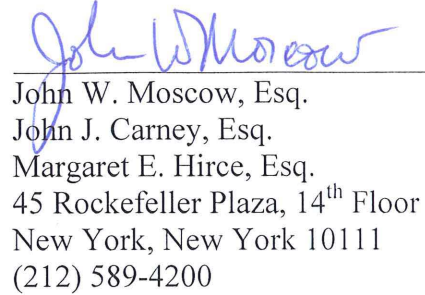 John W Moscow
John W. Moscow, Esq.
John J. Carney, Esq.
Margaret E. Hirce, Esq.
45 Rockefeller Plaza, 14th Floor
New York, New York 10111
(212) 589-4200